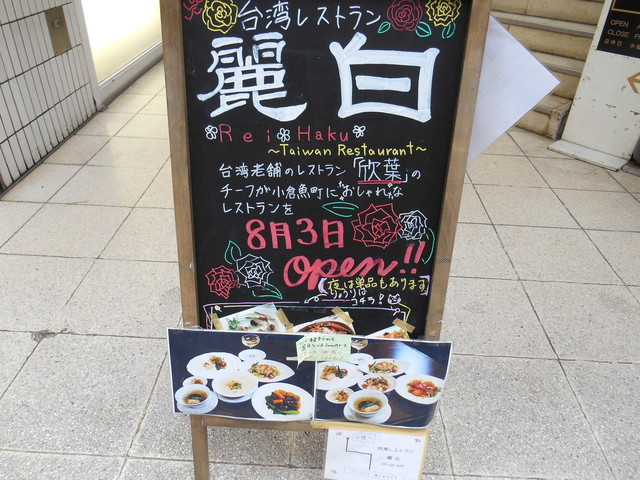 台湾レストラン
麗白
Rei Haku
~Taiwan Restaurant~
台湾老舗のレストラン「欣葉」の
チーフが小倉魚町におしゃれな
レストランを
8月3日
open!!
【夜は単品もあります】
りょうりは
コチラ!
台湾レストラン
麗白
OPEN
CLOSE